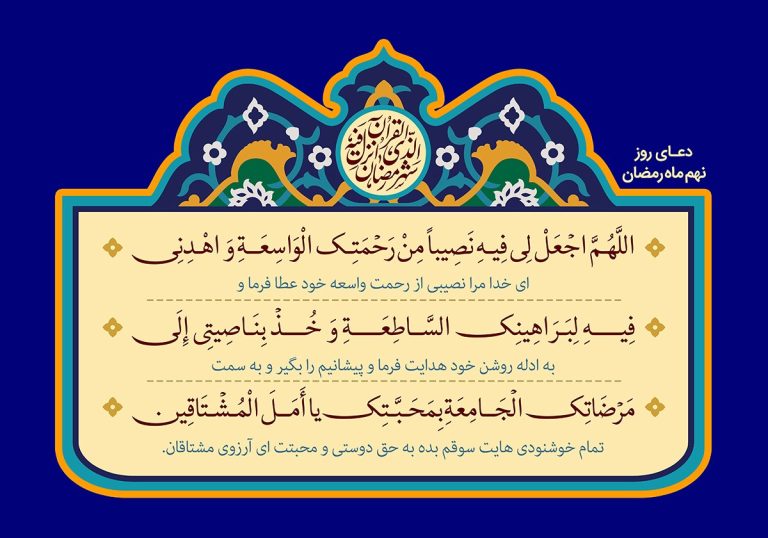 شهر رمضان الذی انزل فیه القرآن
دعای روز
نهم ماه رمضان
اللَّهُمَّ اجْعَلْ لِی فِیهِ نَصِیباً مِنْ رَحْمَتِکَ الْوَاسِعَةِ وَ اهْدِنِی
ای خدا مرا نصیبی از رحمت واسعه خود عطا فرما و
فِیهِ لِبَرَاهِینِکَ السَّاطِعَةِ وَ خُذْ بِنَاصِیَتِی إِلَی
به ادله روشن خود هدایت فرما و پیشانیم را بگیر و به سمت
مَرْضَاتِکَ الْجَامِعَةِ بِمَحَبَّتِکَ یا أَمَلَ الْمُشْتَاقِینَ
تمام خوشنودی هایت سوقم بده به حق دوستی و محبتت ای آرزوی مشتاقان.